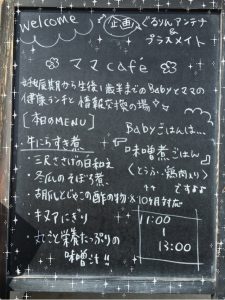 Welcome
企画 ぐるりんアンテナ
&
プラスメイト
ママcafé
妊娠期から生後1歳半までのBabyとママの
健康ランチと情報交換の場
[本日のMENU]
・牛にらすき煮
・三尺ささげの白和え
・冬瓜のそぼろ煮
・胡瓜としゃこの酢の物
・キヌアにぎり
・丸ごと栄養たっぷりの
味噌汁!!
Babyごはんは…
『味噌煮ごはん』
(とうふ・鶏肉入り)
ですよ
※10ヶ月対応
11:00
13:00